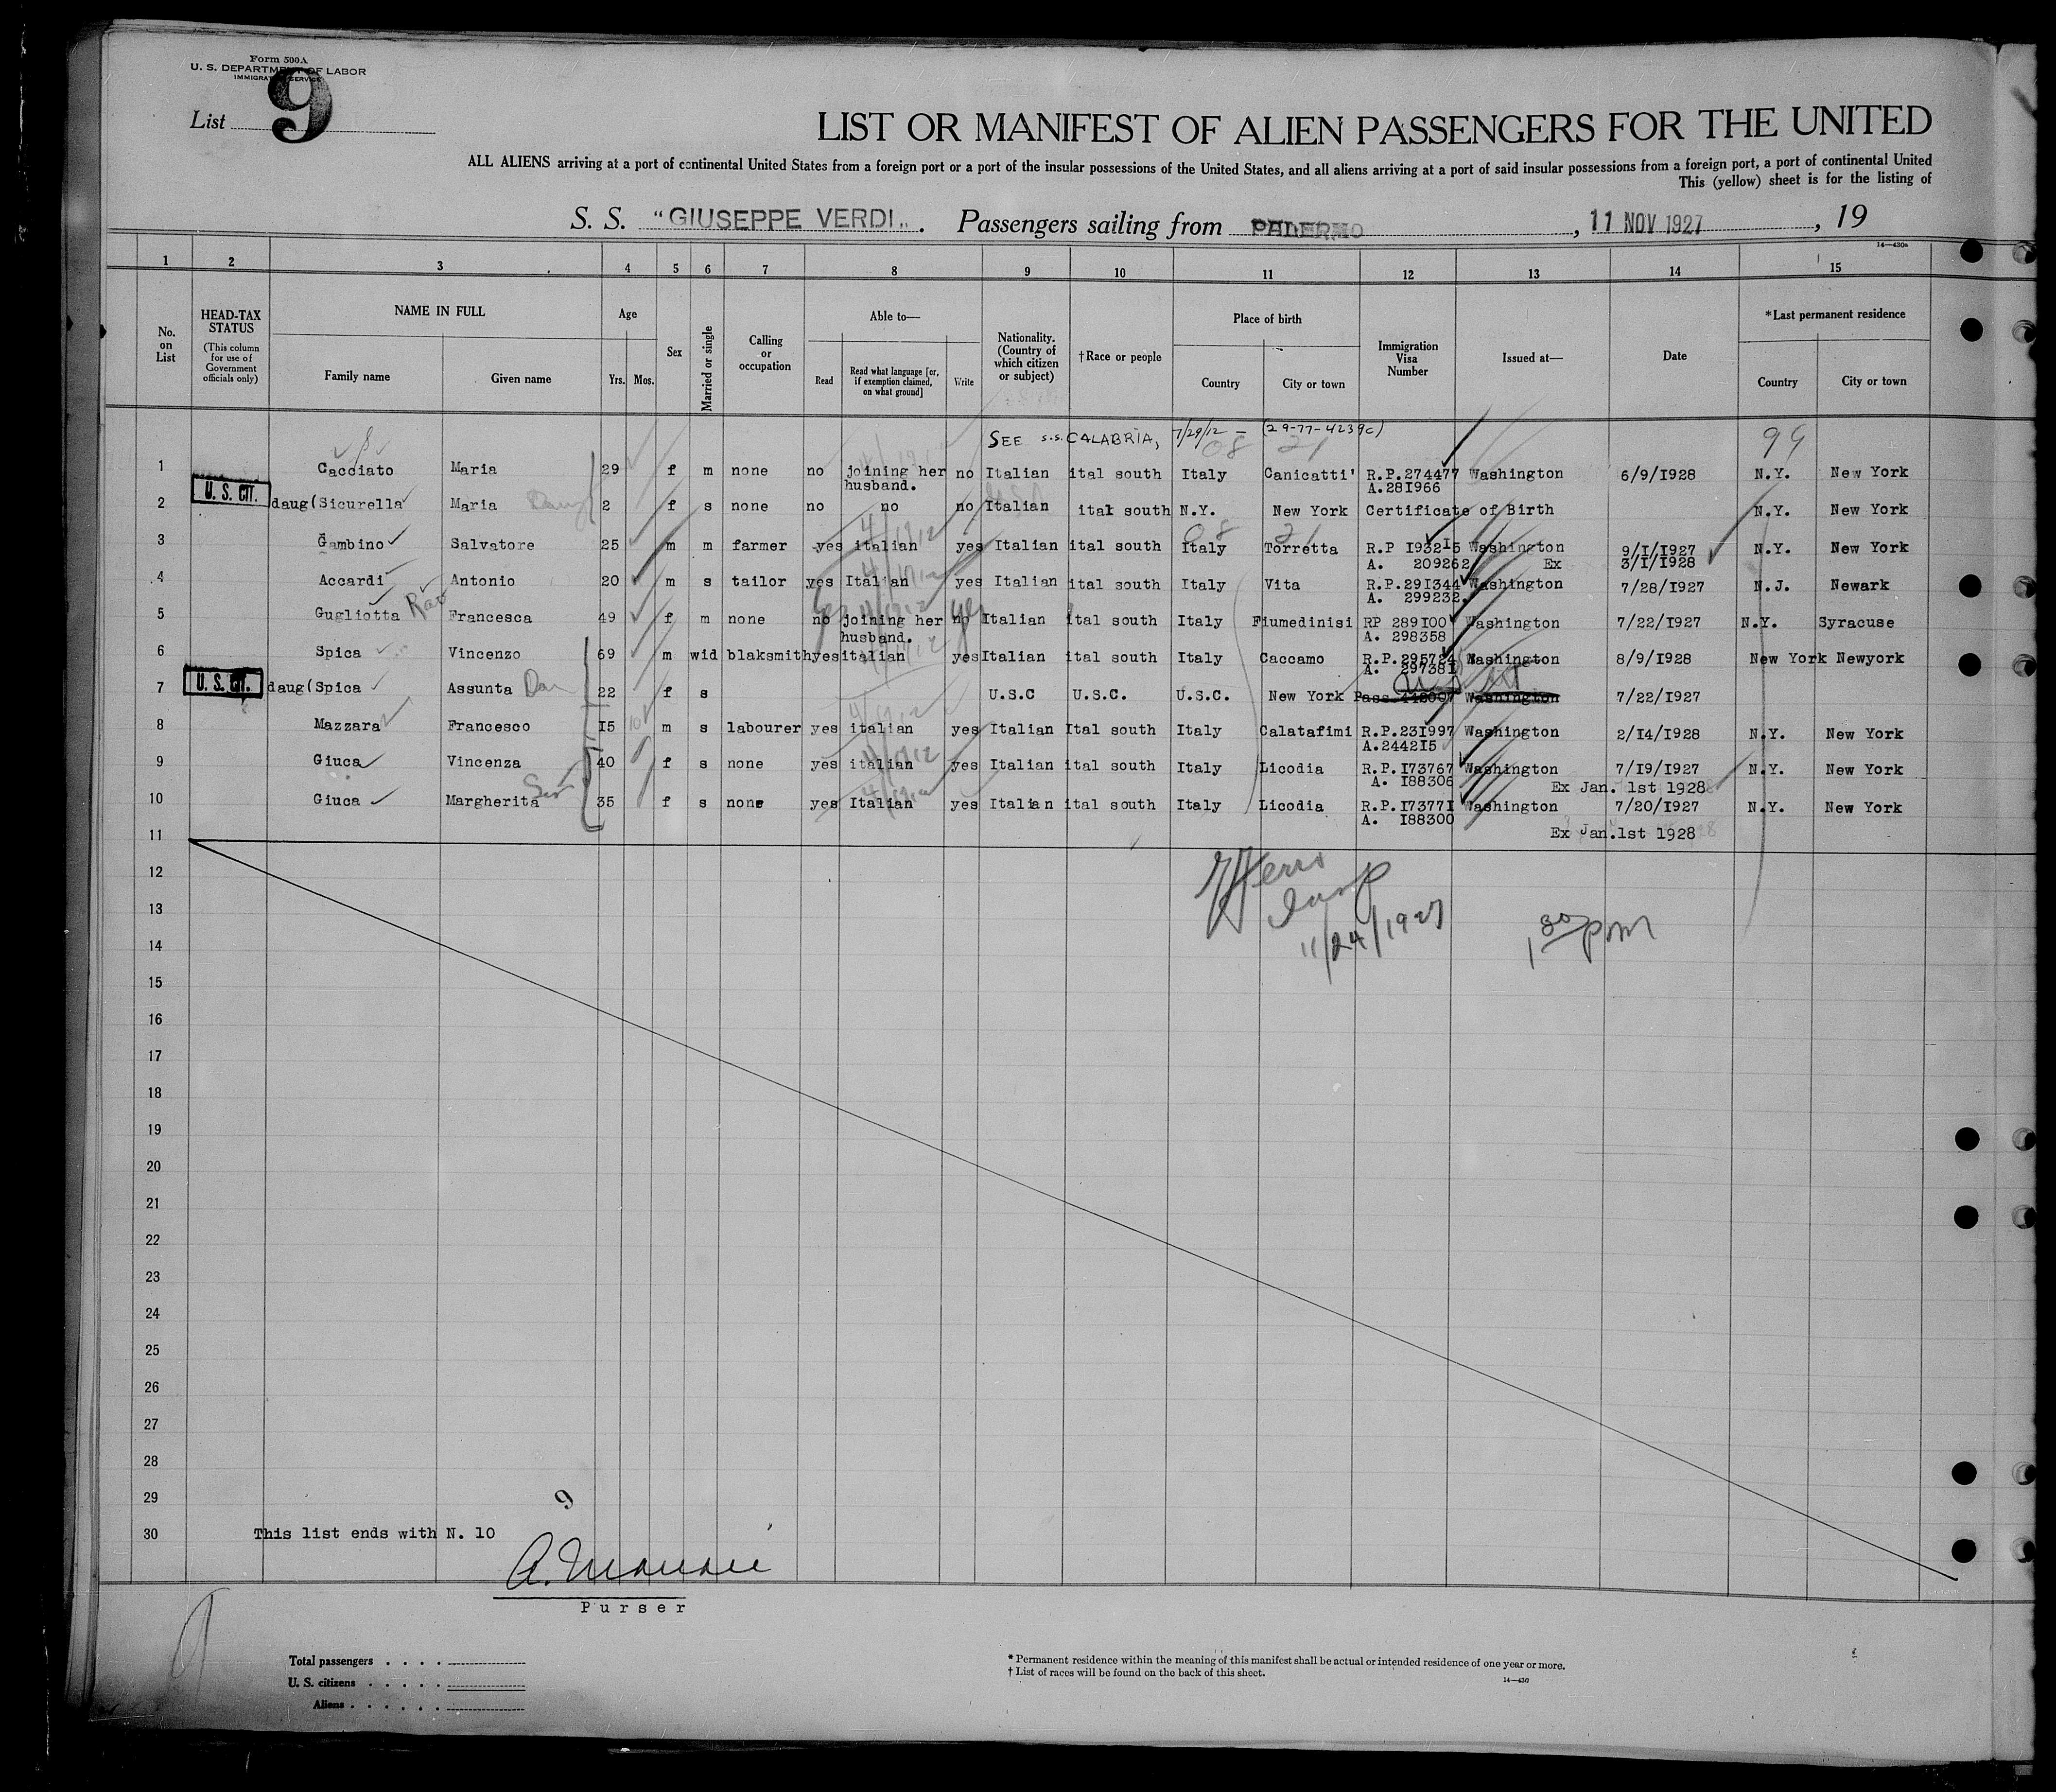 Form 500A
U. S. DEPARTMENT OF LABOR
IMMIGRATION SERVICE
List 9
LIST OR MANIFEST OF ALIEN PASSENGERS FOR THE UNITED
ALL ALIENS arriving at a port of continental United States from a foreign port or a port of the insular possessions of the United States, and all aliens arriving at a port of said insular possessions from a foreign port, a port of continental United
This (yellow) sheet is for the listing of
S. S. "GIUSEPPE VERDI". Passengers sailing from PALERMO, 11 NOV 1927, 19
14—430a
1 2 3 4 5 6 7 8 9 10 11 12 13 14 15
No. on List
HEAD-TAX STATUS
(This column for use of Government officials only)
NAME IN FULL
Family name Given name
Age
Yrs. Mos.
Sex
Married or single
Calling or occupation
Able to—
Read
Read what language [or, if exemption claimed, on what ground]
Write
Nationality. (Country of which citizen or subject)
†Race or people
Place of birth
Country City or town
Immigration Visa Number
Issued at—
Date
*Last permanent residence
Country City or town
SEE S.S. CALABRIA, 7/29/12 — (29-77-4239c)
08 21 99
1 Cacciato Maria 29 f m none no joining her husband. no Italian ital south Italy Canicatti' R.P.274477 Washington 6/9/1928 N.Y. New York
A.281966
U. S. CIT.
2 daug(Sicurella Maria Daug 2 f s none no no no Italian ital south N.Y. New York Certificate of Birth N.Y. New York
08 21
3 Gambino Salvatore 25 m m farmer yes italian yes Italian ital south Italy Torretta R.P 1932I5 Washington 9/1/1927 N.Y. New York
A. 209262 Ex 3/1/1928
4 Accardi Antonio 20 m s tailor yes Italian yes Italian ital south Italy Vita R.P.291344 Washington 7/28/1927 N.J. Newark
A. 299232.
5 Gugliotta Francesca 49 f m none no yes joining her husband. no yes Italian ital south Italy Fiumedinisi RP 289100 Washington 7/22/1927 N.Y. Syracuse
A. 298358
6 Spica Vincenzo 69 m wid blaksmith yes italian yes Italian ital south Italy Caccamo R.P.295724 Washington 8/9/1928 New York Newyork
A. 297381
U. S. CIT.
7 daug(Spica Assunta Dau 22 f s U.S.C U.S.C. U.S.C. New York Pass 442007 Washington 7/22/1927
8 Mazzara Francesco 15 10 m s labourer yes italian yes Italian Ital south Italy Calatafimi R.P.231997 Washington 2/14/1928 N.Y. New York
A.244215
9 Giuca Vincenza 40 f s none yes italian yes Italian ital south Italy Licodia R.P.173767 Washington 7/19/1927 N.Y. New York
A. 188306 Ex Jan. 1st 1928
10 Giuca Margherita Sis 35 f s none yes Italian yes Italian ital south Italy Licodia R.P.173771 Washington 7/20/1927 N.Y. New York
A. 188300
11 Ex Jan.1st 1928
12
Insp
13
11/24/1927 1 30 pm
14
15
16
17
18
19
20
21
22
23
24
25
26
27
28
29
9
30 This list ends with N. 10
Purser
Total passengers
U. S. citizens
Aliens
* Permanent residence within the meaning of this manifest shall be actual or intended residence of one year or more.
† List of races will be found on the back of this sheet.
14—430